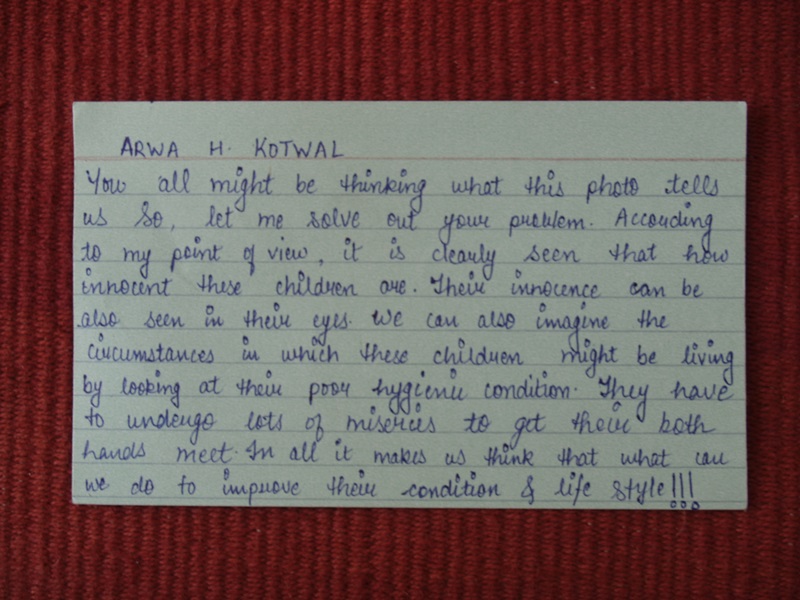 ARWA H. KOTWAL
You all might be thinking what this photo tells
us So, let me solve out your problem. According
to my point of view, it is clearly seen that how
innocent these children are. Their innocence can be
also seen in their eyes. We can also imagine the
circumstances in which these children might be living
by looking at their poor hygienic condition. They have
to undergo lots of miseries to get their both
hands meet. In all it makes us think that what can
we do to improve their condition & life style!!!